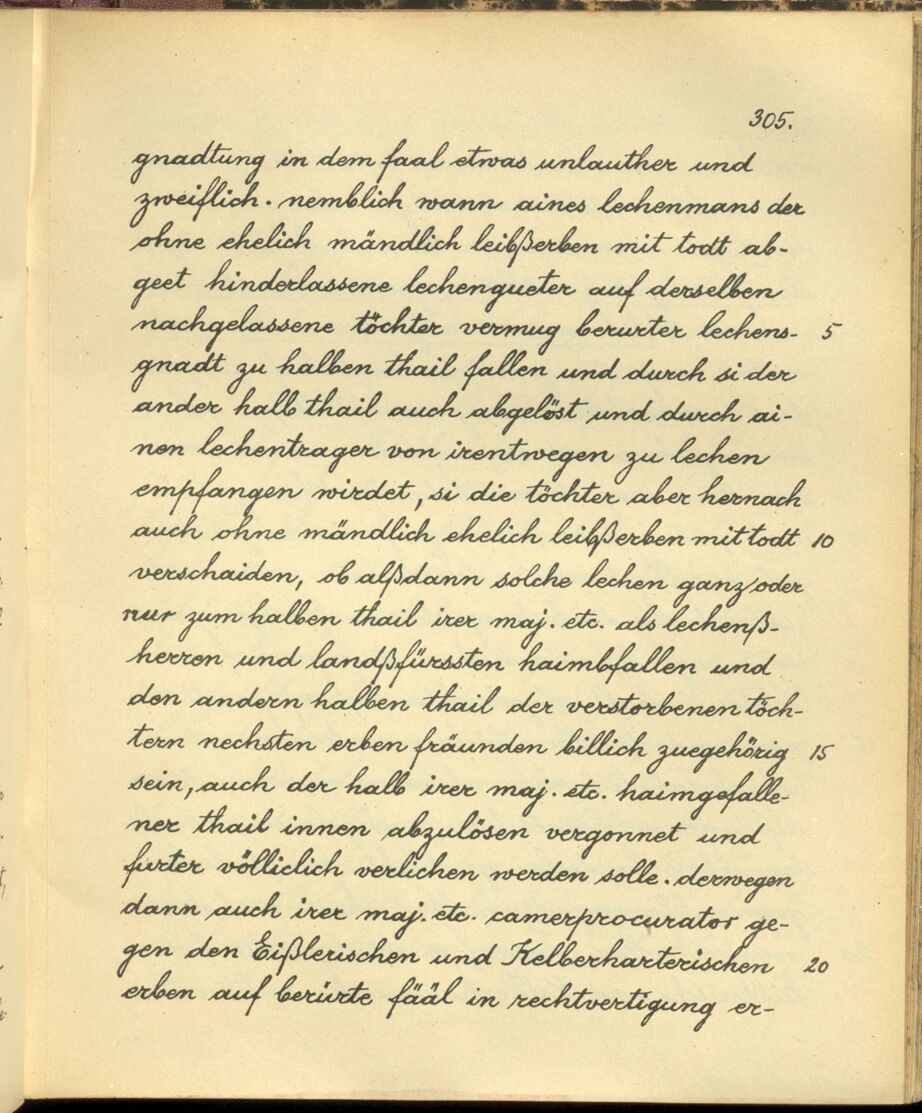 305.
gnadtung in dem faal etwas unlauther und
zweiflich. nemblich wann aines lechenmans der
ohne ehelich mändlich leibßerben mit todt ab-
geet hinderlassene lechengueter auf derselben
nachgelassene töchter vermug berurter lechens- 5
gnadt zu halben thail fallen und durch si der
ander halb thail auch abgelöst und durch ai-
nen lechentrager von irentwegen zu lechen
empfangen wirdet, si die töchter aber hernach
auch ohne mändlich ehelich leibßerben mit todt 10
verschaiden, ob alßdann solche lechen ganz oder
nur zum halben thail irer maj. etc. als lechenß-
herren und landßfürssten haimbfallen und
den andern halben thail der verstorbenen töch-
tern nechsten erben fräunden billich zuegehörig 15
sein, auch der halb irer maj. etc. haimgefalle-
ner thail innen abzulösen vergonnet und
furter völliclich verlichen werden solle. derwegen
dann auch irer maj. etc. camerprocurator ge-
gen den Eißlerischen und Kelberharterischen 20
erben auf berürte fääl in rechtvertigung er-